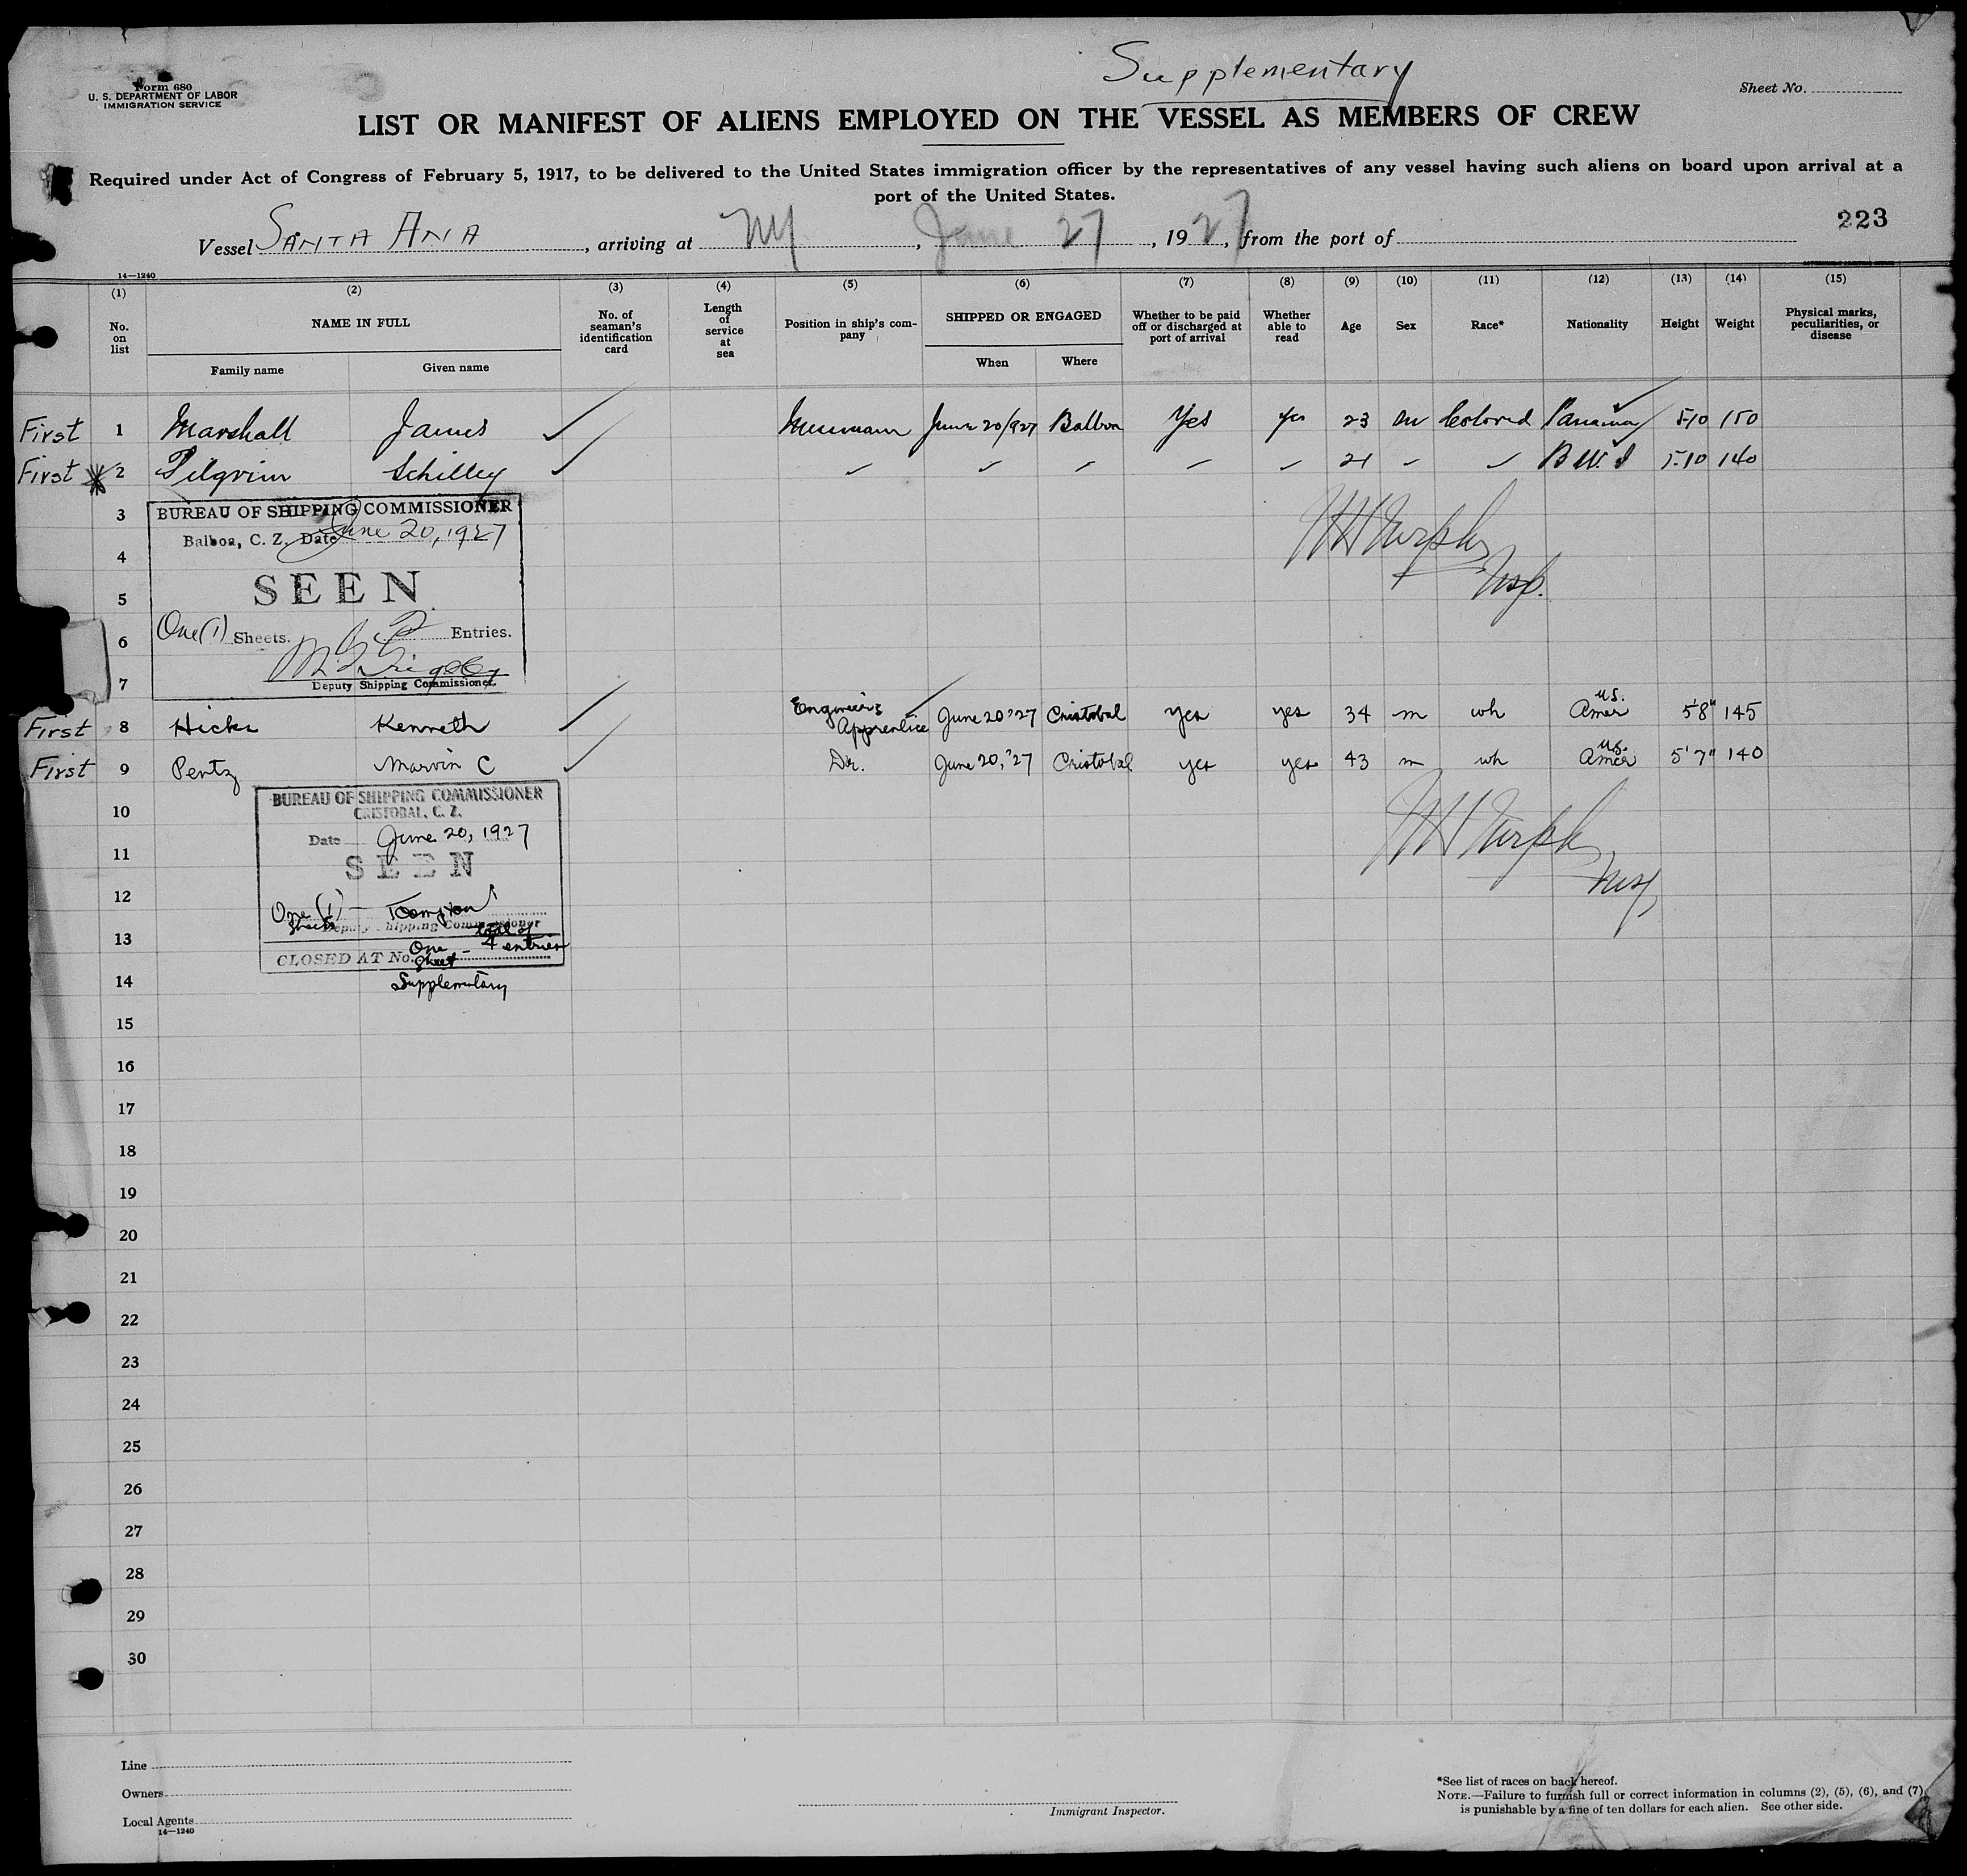 Supplementary
Form 680
U. S. DEPARTMENT OF LABOR
IMMIGRATION SERVICE
Sheet No.
LIST OR MANIFEST OF ALIENS EMPLOYED ON THE VESSEL AS MEMBERS OF CREW
Required under Act of Congress of February 5, 1917, to be delivered to the United States immigration officer by the representatives of any vessel having such aliens on board upon arrival at a
port of the United States.
223
Vessel SANTA ANA, arriving at NY, June 27, 1927, from the port of
14—1240
(1) (2) (3) (4) (5) (6) (7) (8) (9) (10) (11) (12) (13) (14) (15)
No. on list
NAME IN FULL
Family name Given name
No. of seaman's identification card
Length of service at sea
Position in ship's company
SHIPPED OR ENGAGED
When Where
Whether to be paid off or discharged at port of arrival
Whether able to read
Age
Sex
Race*
Nationality
Height
Weight
Physical marks, peculiarities, or disease
First 1 Marshall James Messman June 20/927 Balboa Yes yes 23 m Colored Panama 5-10 150
First 2 Pilgrim Schilley 21 B.W.I 5-10 140
3
BUREAU OF SHIPPING COMMISSIONER
Balboa, C. Z. Date June 20, 1927
4
SEEN
5
One (1) Sheets. 2 Entries.
6
Deputy Shipping Commissioner.
7
Insp.
First 8 Hicks Kenneth Engineer's Apprentice June 20 '27 Cristobal yes yes 34 m wh U.S. Amer 5'8" 145
First 9 Pentz Marvin C Do. June 20, '27 Cristobal yes yes 43 m wh U.S. Amer 5'7" 140
BUREAU OF SHIPPING COMMISSIONER
CRISTOBAL, C. Z.
10
Date June 20, 1927
11
SEEN
12
One (1) Sheets
Deputy Shipping Commissioner
13
total of 4 entries
CLOSED AT No. One Sheet
14
Supplementary
Insp
15
16
17
18
19
20
21
22
23
24
25
26
27
28
29
30
Line
Owners
Local Agents
14—1240
Immigrant Inspector.
*See list of races on back hereof.
NOTE.—Failure to furnish full or correct information in columns (2), (5), (6), and (7)
is punishable by a fine of ten dollars for each alien. See other side.